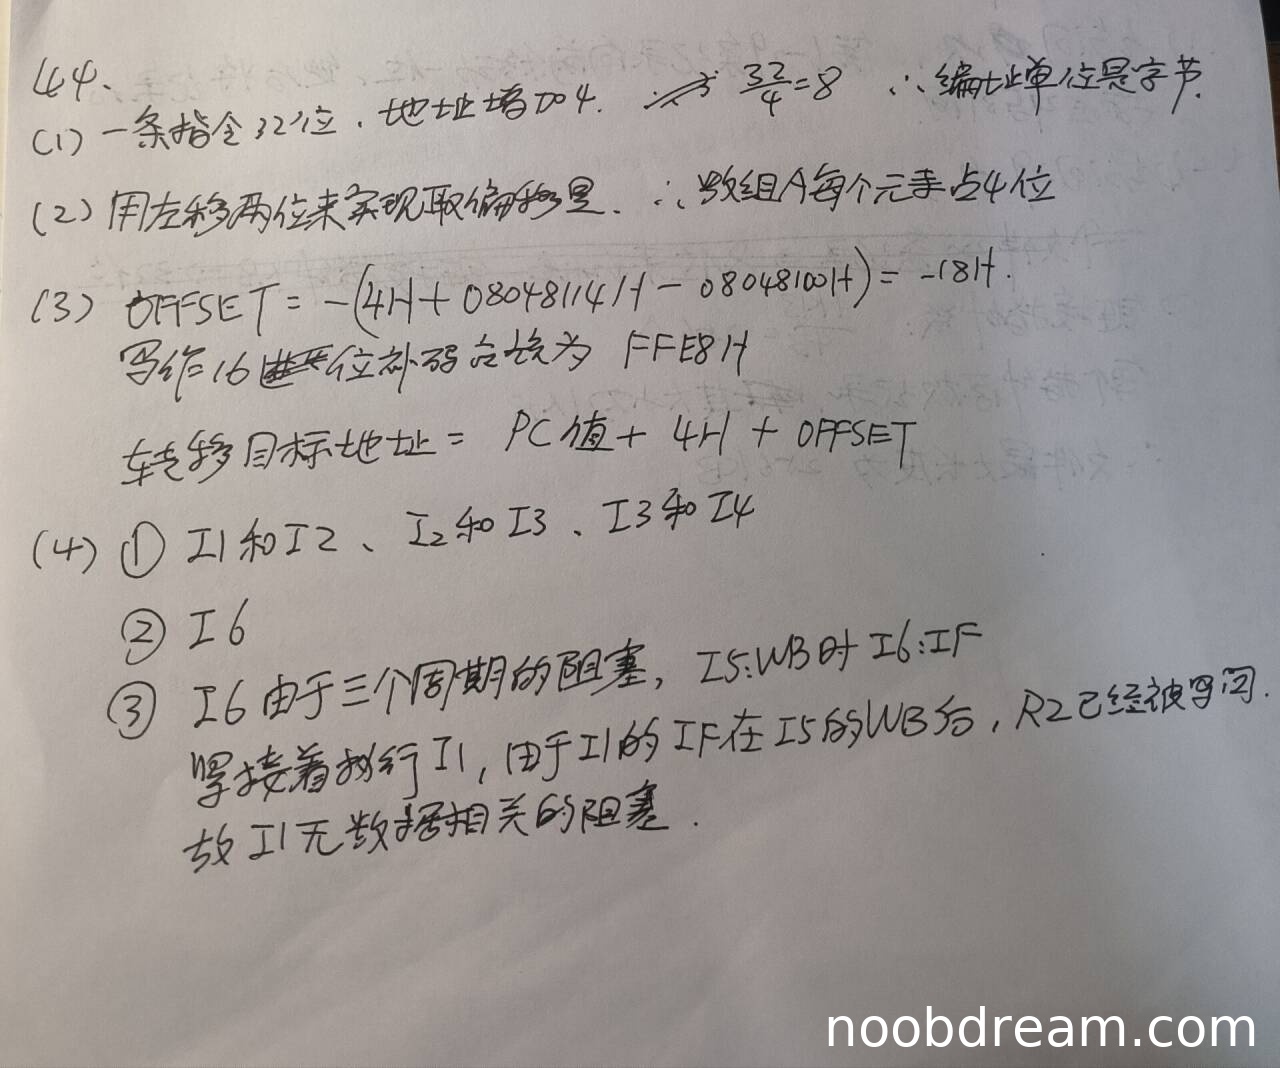 44、
(1) 一条指令32位，地址增加4. 32/4=8 ∴编址单位是字节.
(2) 用左移两位来实现取偏移量. ∴数组A每个元素占4位
(3) OFFSET = -(4H + 08048114H - 08048100H) = -18H.
写作16位补码应该为 FFE8H
转移目标地址 = PC值 + 4H + OFFSET
(4) ① I1和I2、I2和I3、I3和I4
② I6
③ I6由于三个周期的阻塞, I5:WB时 I6:IF
紧接着执行I1, 由于I1的IF在I5的WB后, R2已经被写回.
故I1无数据相关的阻塞.
noobdream.com